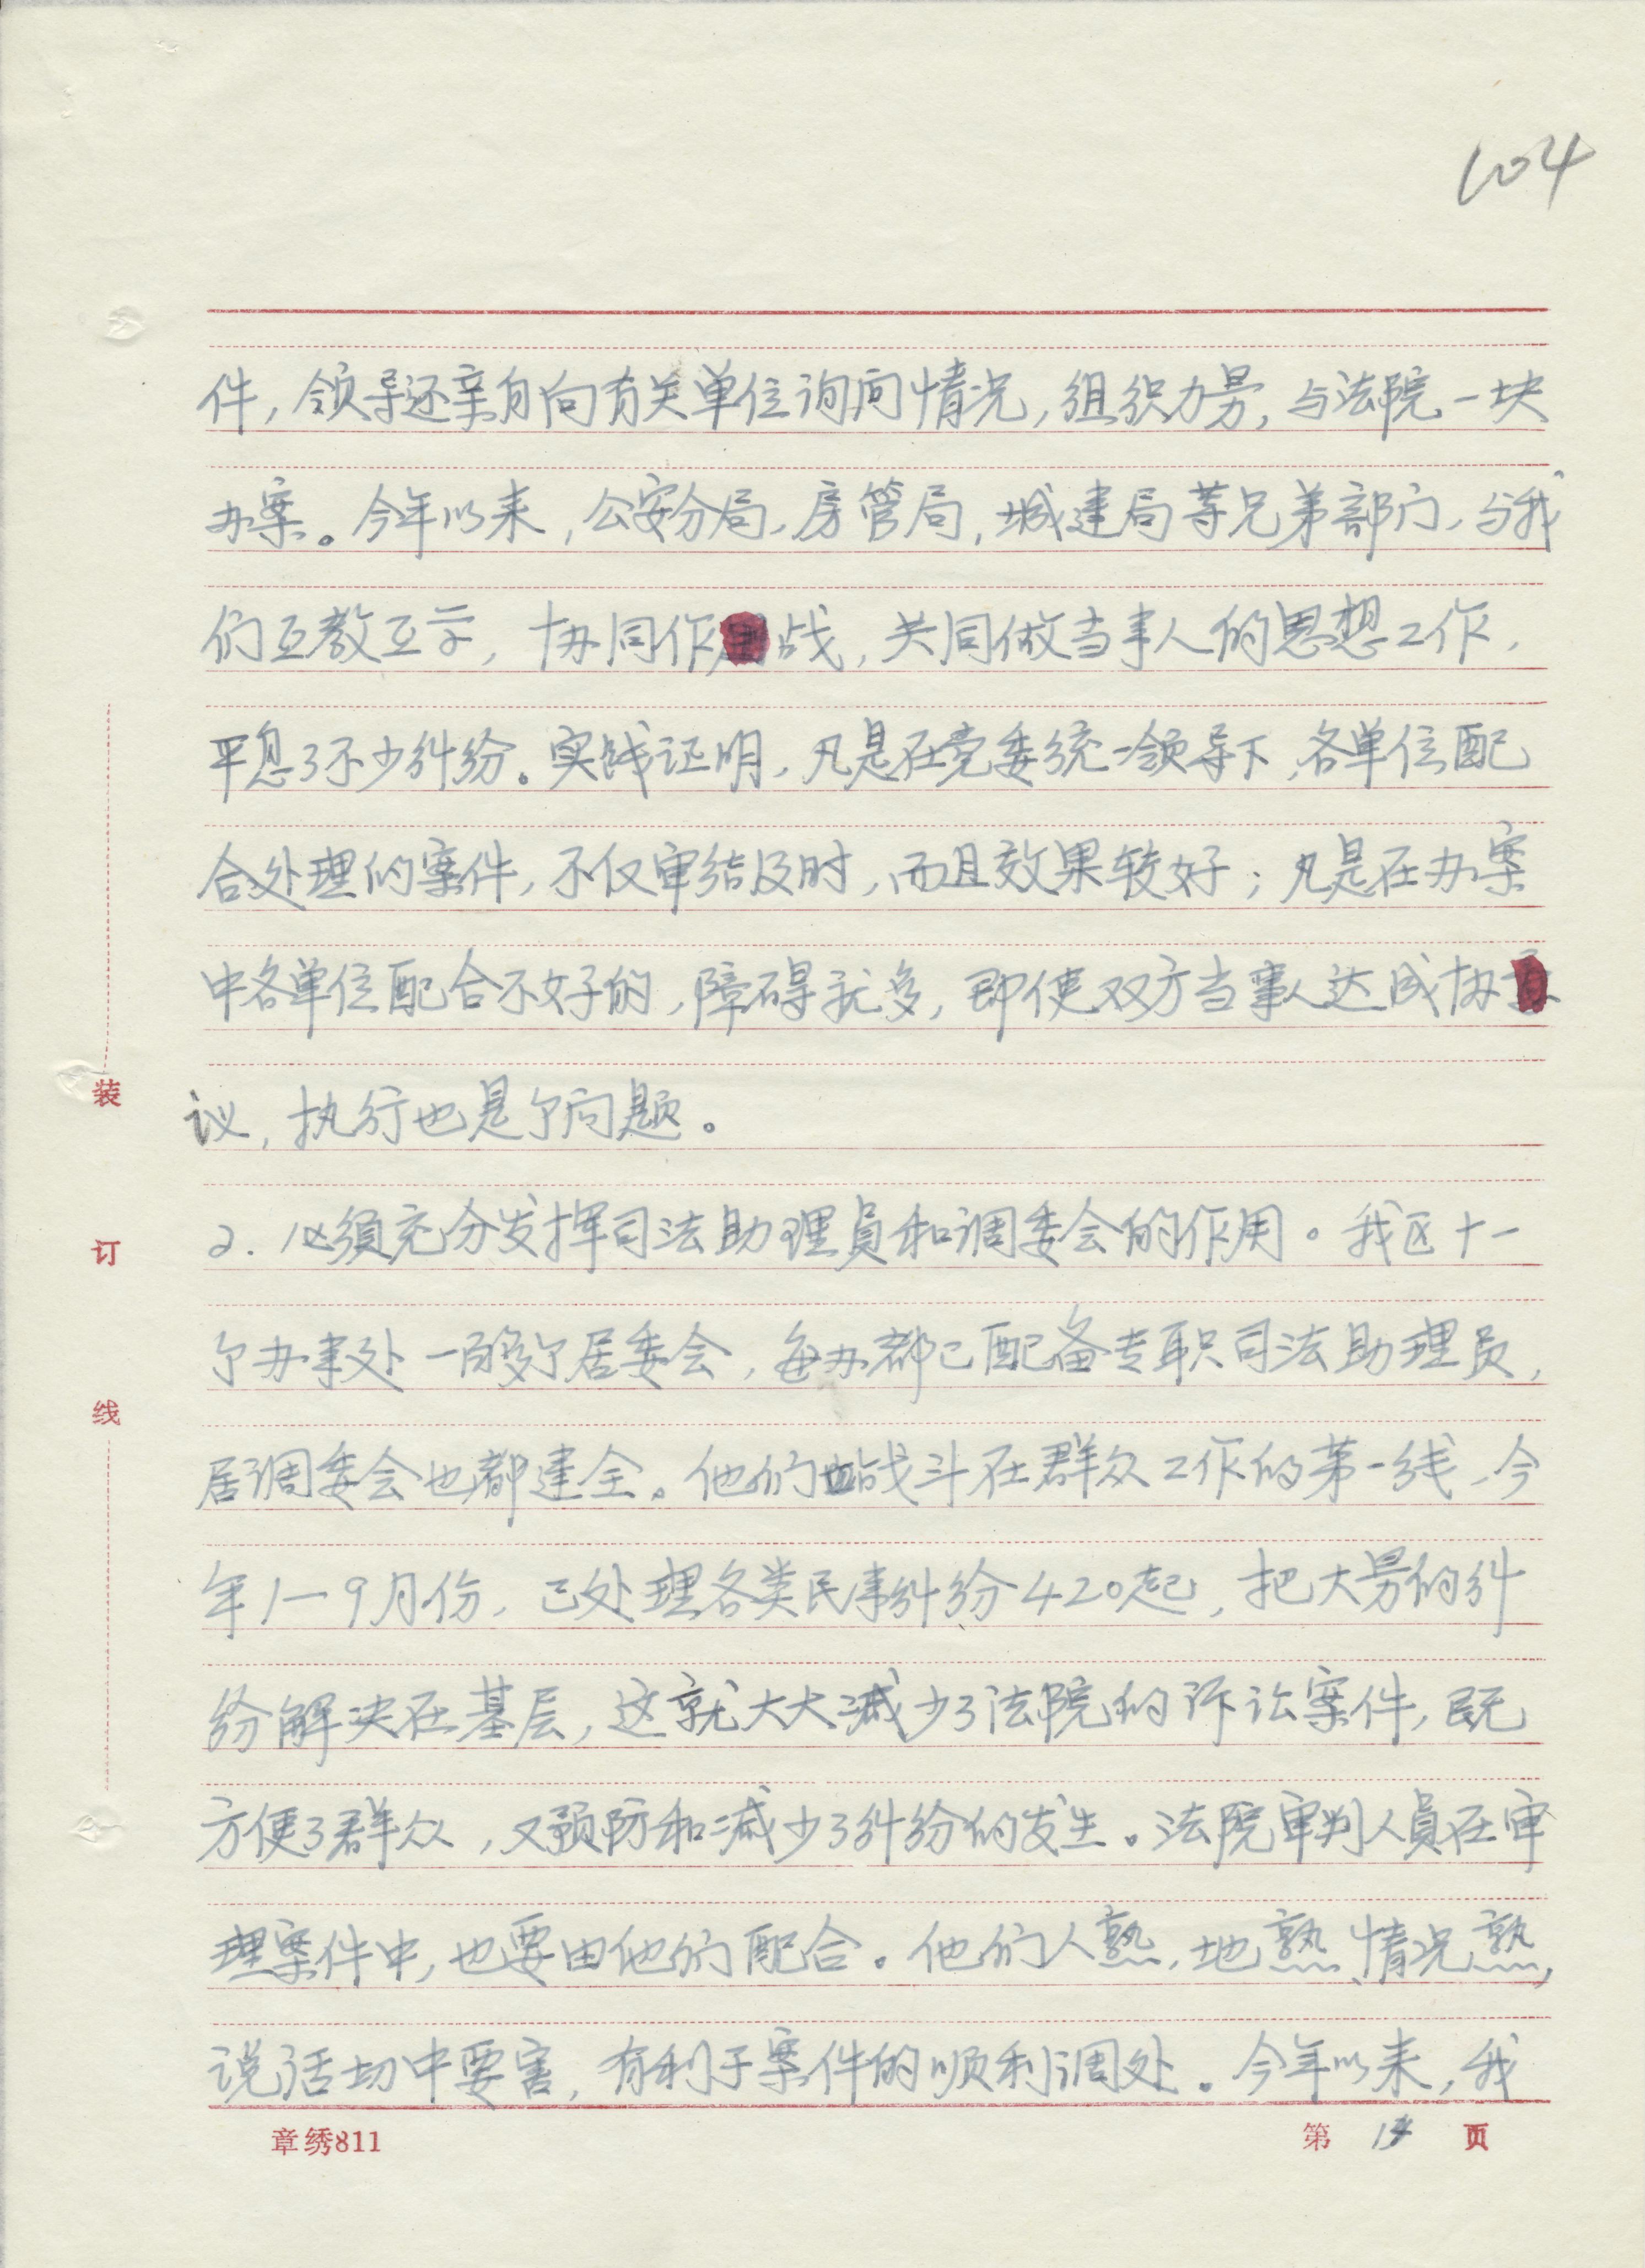 104
件，领导还亲自向有关单位询问情况，组织力量，与法院一块
办案。今年以来，公安分局、房管局，城建局等兄弟部门，与我
们互教互学，协同作战，共同做当事人的思想工作，
平息了不少纠纷。实践证明，凡是在党委统一领导下，各单位配
合处理的案件，不仅审结及时，而且效果较好；凡是在办案
中各单位配合不好的，障碍就多，即使双方当事人达成协
议，执行也是个问题。
2. 必须充分发挥司法助理员和调委会的作用。我区十一
个办事处一百多个居委会，每办都已配备专职司法助理员，
居调委会也都建全。他们战斗在群众工作的第一线，今
年1—9月份，已处理各类民事纠纷420起，把大量的纠
纷解决在基层，这就大大减少了法院的诉讼案件，既
方便了群众，又预防和减少了纠纷的发生。法院审判人員在审
理案件中，也要由他们配合。他们人熟，地熟、情况熟，
说话切中要害，有利于案件的顺利调处。今年以来，我
装
订
线
章绣811
第 页